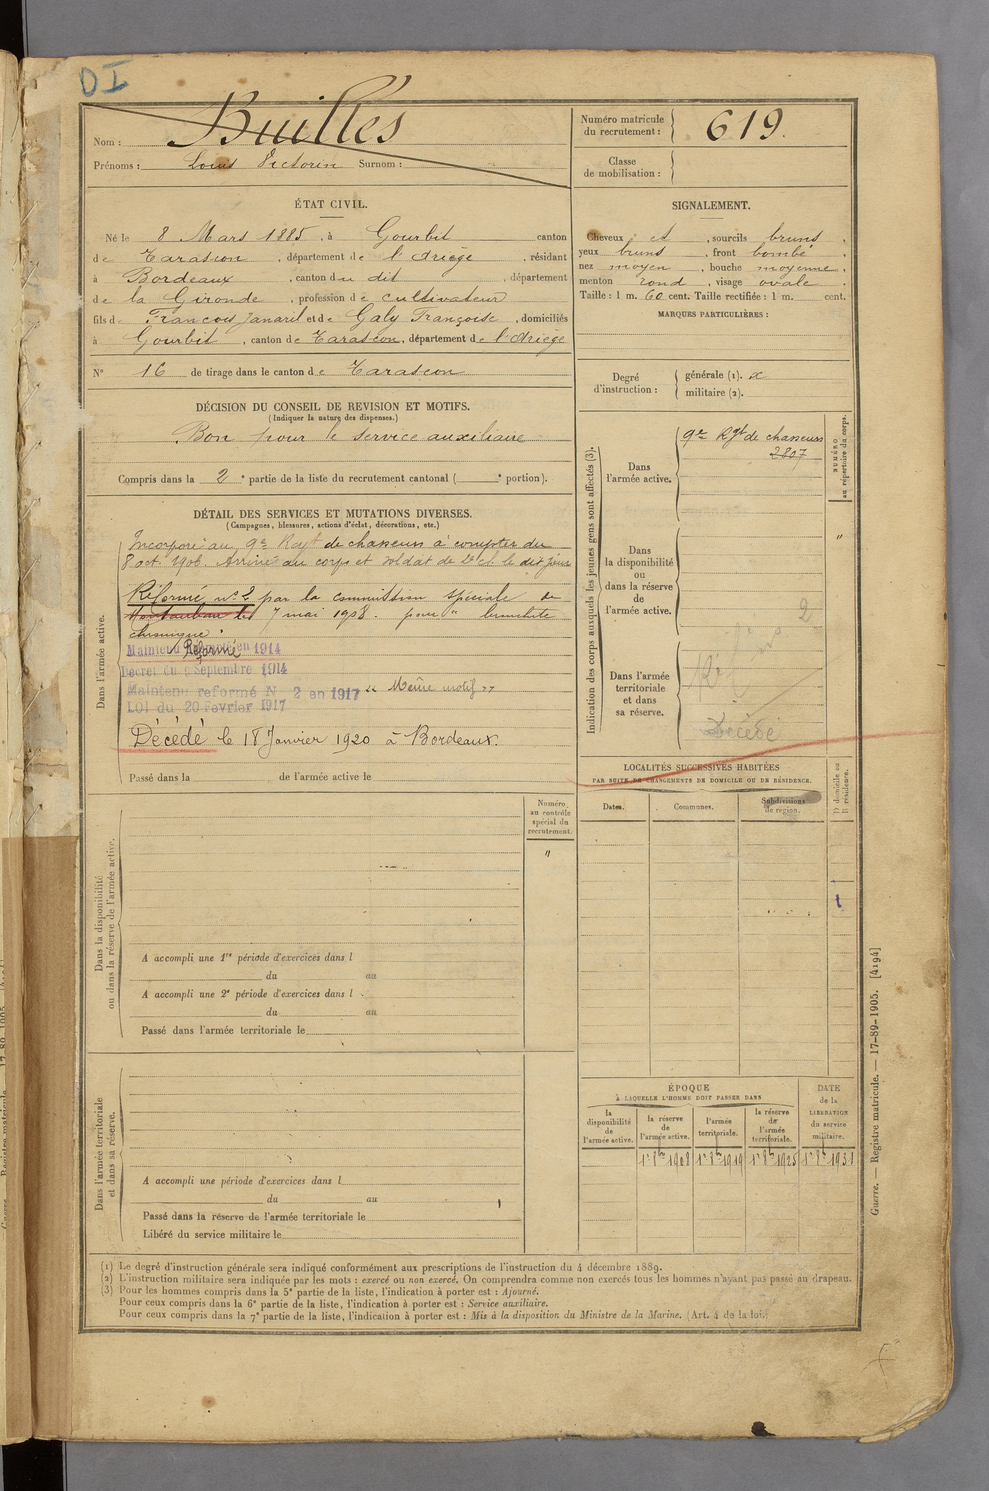 DI
Nom : Builles
Prénoms : Louis Victorin Surnom :
Numéro matricule du recrutement : 619
Classe de mobilisation :
ÉTAT CIVIL.
Né le 8 Mars 1885, à Gourbit canton
de Tarascon, département de l'Ariège, résidant
à Bordeaux, canton du dit, département
de la Gironde, profession de cultivateur
fils de François Janaril et de Galy Françoise, domiciliés
à Gourbit, canton de Tarascon, département de l'Ariège
N° 16 de tirage dans le canton de Tarascon
SIGNALEMENT.
Cheveux et, sourcils bruns,
yeux bruns, front bombé,
nez moyen, bouche moyenne,
menton rond, visage ovale.
Taille : 1 m. 60 cent. Taille rectifiée : 1 m. cent.
MARQUES PARTICULIÈRES :
Degré d'instruction : générale (1). x
militaire (2).
DÉCISION DU CONSEIL DE REVISION ET MOTIFS.
(Indiquer la nature des dispenses.)
Bon pour le service auxiliaire
Compris dans la 2e partie de la liste du recrutement cantonal ( e portion).
DÉTAIL DES SERVICES ET MUTATIONS DIVERSES.
(Campagnes, blessures, actions d'éclat, décorations, etc.)
Dans l'armée active.
Incorporé au 9e Regt de chasseurs à compter du
8 oct. 1906. Arrivé au corps et soldat de 2e cl. le dit jour
Réformé n° 2 par la commission spéciale de
Montauban le 7 mai 1908. pour " bronchite
chronique "
Maintenu Réformé en 1914
Décret du 9 Septembre 1914
Maintenu reformé N 2 en 1917 "Même motif"
Loi du 20 Fevrier 1917
Décédé le 18 Janvier 1920 à Bordeaux.
Passé dans la de l'armée active le
Indication des corps auxquels les jeunes gens sont affectés (3).
NUMÉRO au répertoire du corps.
Dans l'armée active. 9e Rgt de chasseurs
2807
Dans la disponibilité ou dans la réserve de l'armée active.
"
Dans l'armée territoriale et dans sa réserve.
Réf n° 2
Décédé
LOCALITÉS SUCCESSIVES HABITÉES
PAR SUITE DE CHANGEMENTS DE DOMICILE OU DE RÉSIDENCE.
Dates. Communes. Subdivisions de région.
D domicile ou R résidence.
Numéro au contrôle spécial du recrutement.
"
Dans la disponibilité ou dans la réserve de l'armée active.
A accompli une 1re période d'exercices dans l
du au
A accompli une 2e période d'exercices dans l
du au
Passé dans l'armée territoriale le
Dans l'armée territoriale et dans sa réserve.
A accompli une période d'exercices dans l
du au
Passé dans la réserve de l'armée territoriale le
Libéré du service militaire le
ÉPOQUE
À LAQUELLE L'HOMME DOIT PASSER DANS
la disponibilité de l'armée active.
la réserve de l'armée active.
l'armée territoriale.
la réserve de l'armée territoriale.
DATE de la LIBÉRATION du service militaire.
1er 8bre 1908 1er 8bre 1919 1er 8bre 1925 1er 8bre 1931
(1) Le degré d'instruction générale sera indiqué conformément aux prescriptions de l'instruction du 4 décembre 1889.
(2) L'instruction militaire sera indiquée par les mots : exercé ou non exercé. On comprendra comme non exercés tous les hommes n'ayant pas passé au drapeau.
(3) Pour les hommes compris dans la 5e partie de la liste, l'indication à porter est : Ajourné.
Pour ceux compris dans la 6e partie de la liste, l'indication à porter est : Service auxiliaire.
Pour ceux compris dans la 7e partie de la liste, l'indication à porter est : Mis à la disposition du Ministre de la Marine. (Art. 4 de la loi)
Guerre. — Registre matricule. — 17-89-1905. [4194]